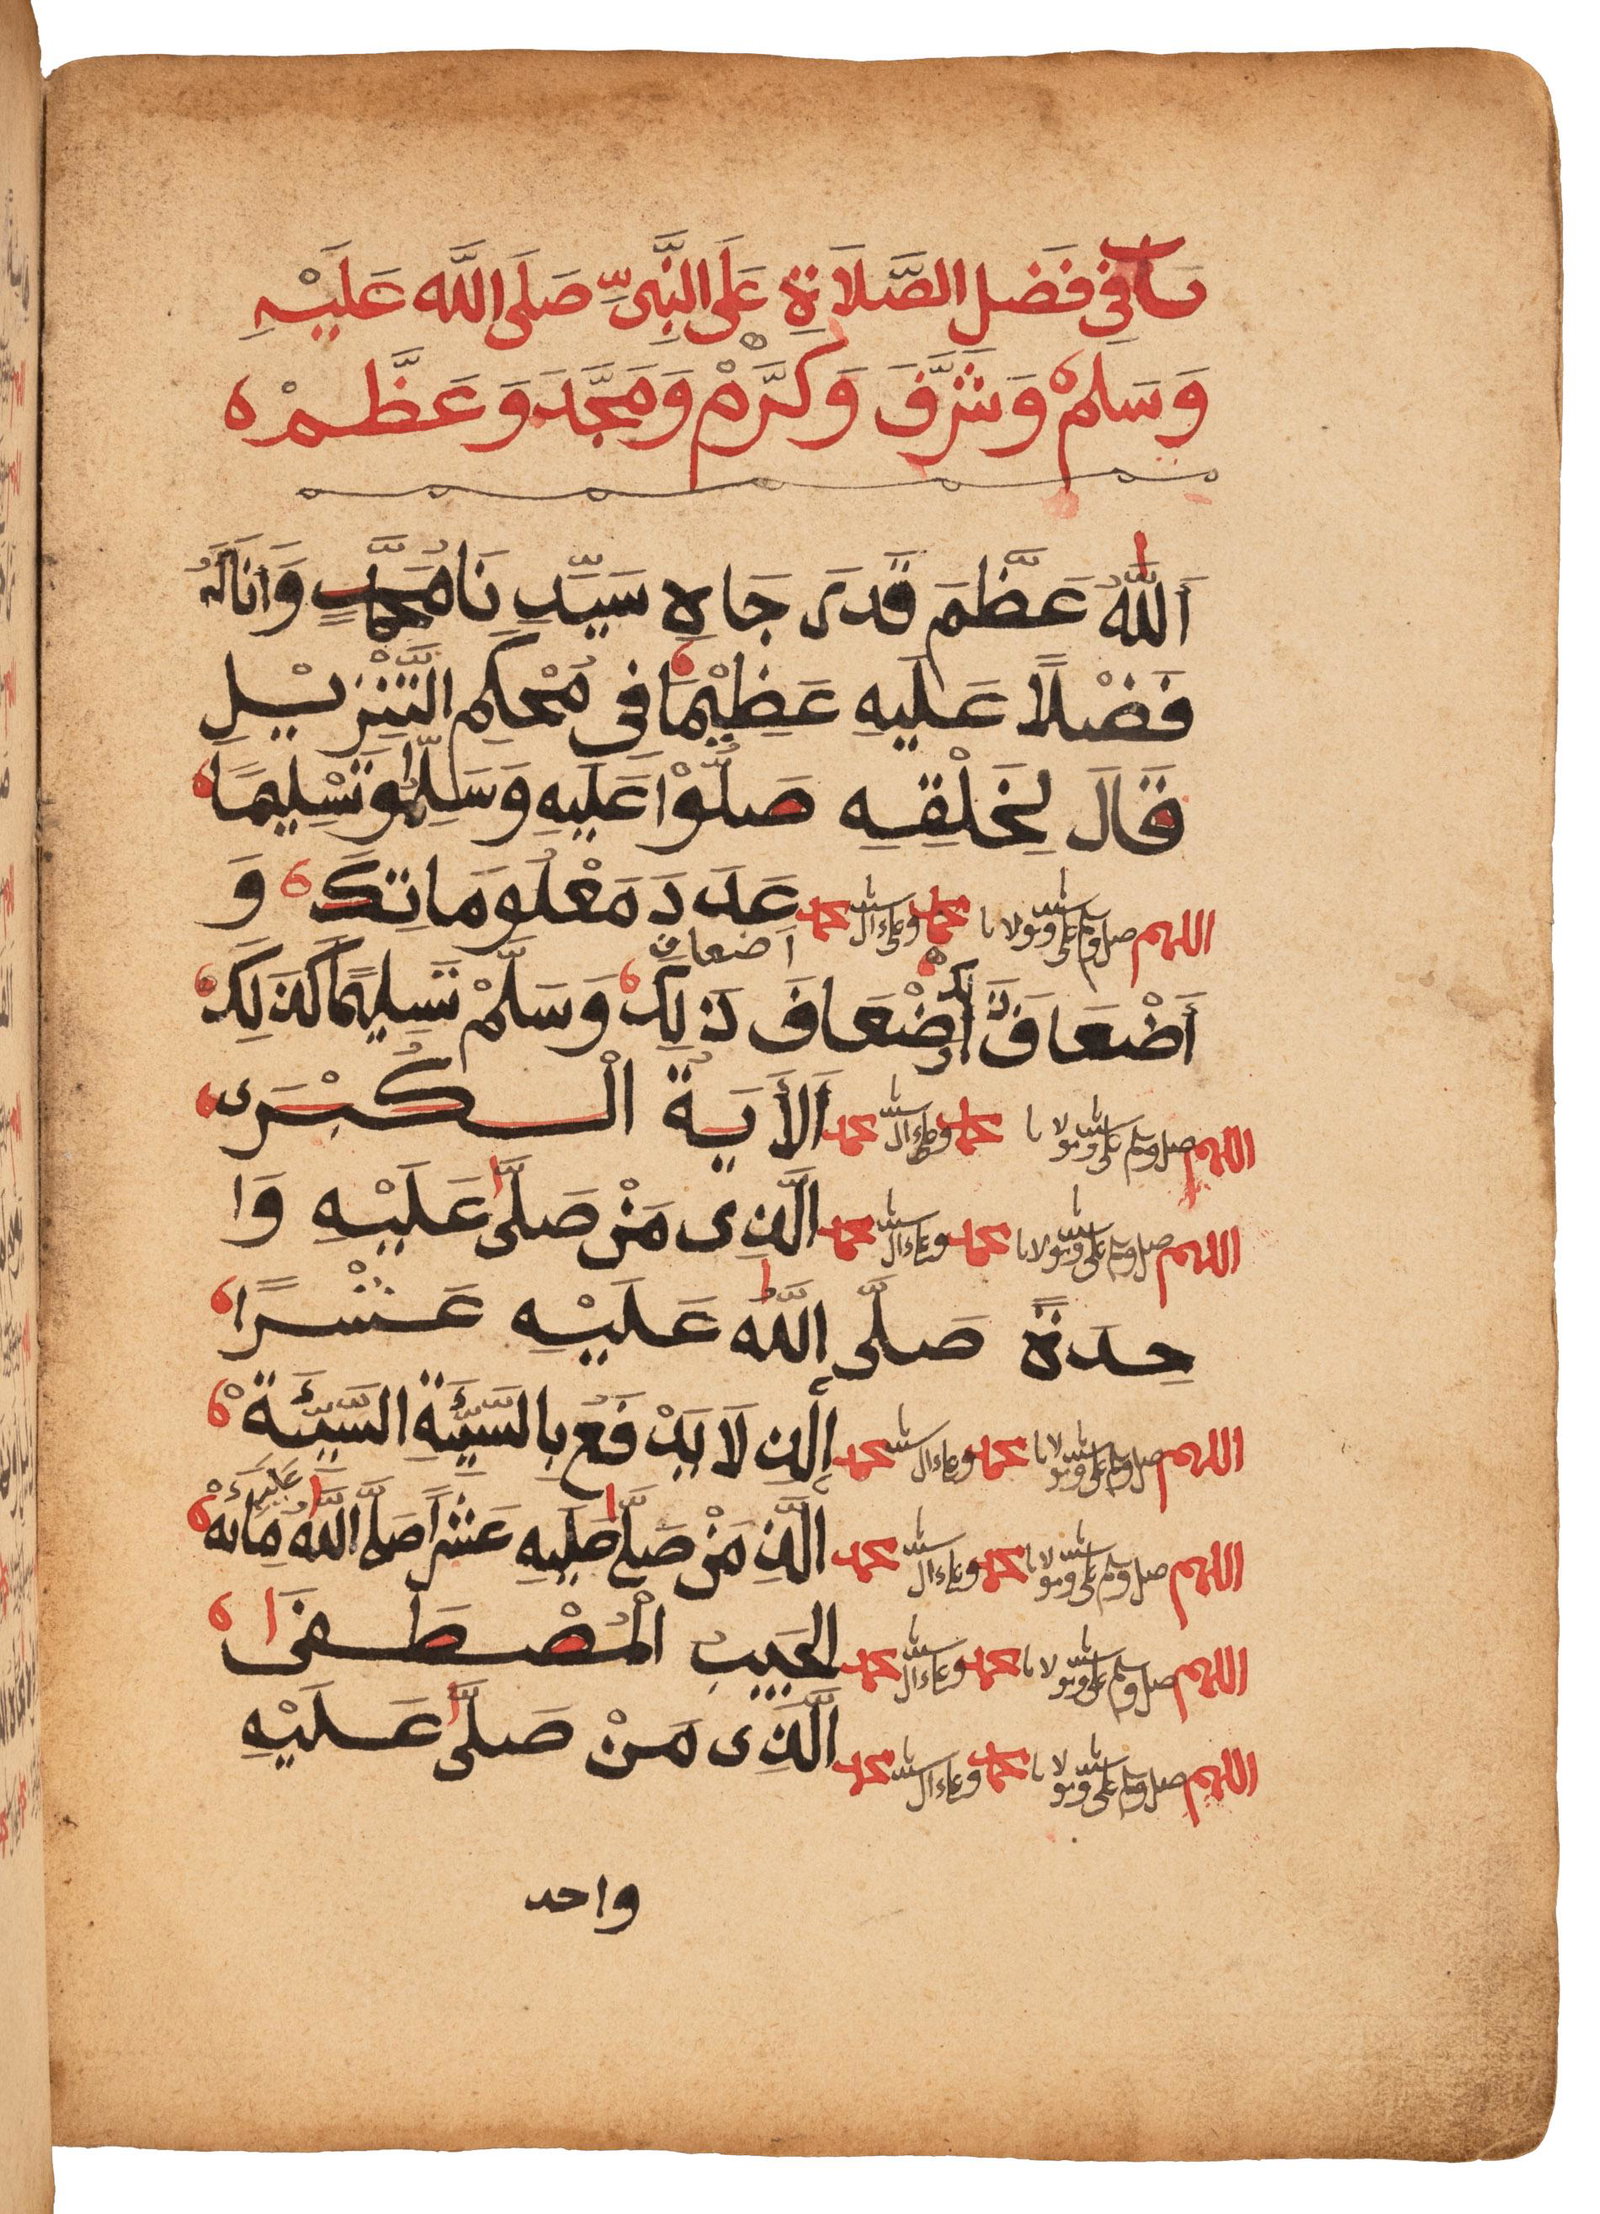 باب في فَضَل الصَّلَاةِ عَلَى النَّبِيِّ صَلَى اللَّه عَلَيْهِ
وَسَلمْ وَشَرَّفَ وَكَرَّمْ وَمَجَّدَ وَعَظَّمْ
اَللَّهُ عَظَّمَ قَدرَ جَاهِ سَيِّدِنَا مُحَمَّدٍ وَاَنَالَهُ
فَضْلًا عَلَيهِ عَظِيْمًا فى مُحْكَمِ التَّنْزِيْلِ
قَالَ لِخَلْقِهِ صَلُّوْا عَلَيهِ وَسَلِّمُوا تَسْلِيمًا
اللهم صل وسلم على سيدنا ومولانا محمد وعلى ءال سيدنا محمد عَدَدَ مَعْلُومَاتِكَ وَ
أَضْعَافَ أَضْعَافَ ذَلِكَ وَسَلَّمْ تَسلِيمًا كَذَلِكَ
اضعاف
اللهم صل وسلم على سيدنا ومولانا محمد وعلى ءال سيدنا محمد اَلأَيَةُ الْكُبْرَى
اللهم صل وسلم على سيدنا ومولانا محمد وعلى ءال سيدنا محمد الَّذِى مَنْ صَلَّى عَلَيْهِ وَا
حِدَةً صَلَّى اللَّهُ عَلَيْهِ عَشْرًا
اللهم صل وسلم على سيدنا ومولانا محمد وعلى ءال سيدنا محمد الذِى لَا يَدْفَعُ بِالسَّيِّئَةِ السَّيِّئَةَ
اللهم صل وسلم على سيدنا ومولانا محمد وعلى ءال سيدنا محمد الَّذِى مَنْ صَلَّى عَلَيهِ عَشْرًا صَلَّى اللَّهُ عَلَيهِ مِائَة
اللهم صل وسلم على سيدنا ومولانا محمد وعلى ءال سيدنا محمد الحَبِيبِ الْمُصْطَفَى
اللهم صل وسلم على سيدنا ومولانا محمد وعلى ءال سيدنا محمد الَّذِى مَنْ صَلَّى عَلَيْهِ
واحد